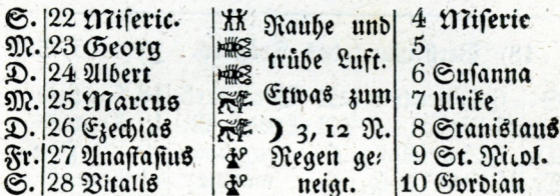 S. 22 Miseric. Rauhe und 4 Miserie
M. 23 Georg trübe Luft. 5
D. 24 Albert Etwas zum 6 Susanna
M. 25 Marcus ☽ 3, 12 N. 7 Ulrike
D. 26 Ezechias Regen ge- 8 Stanislaus
Fr. 27 Anastasius neigt. 9 St. Nicol.
S. 28 Vitalis 10 Gordian